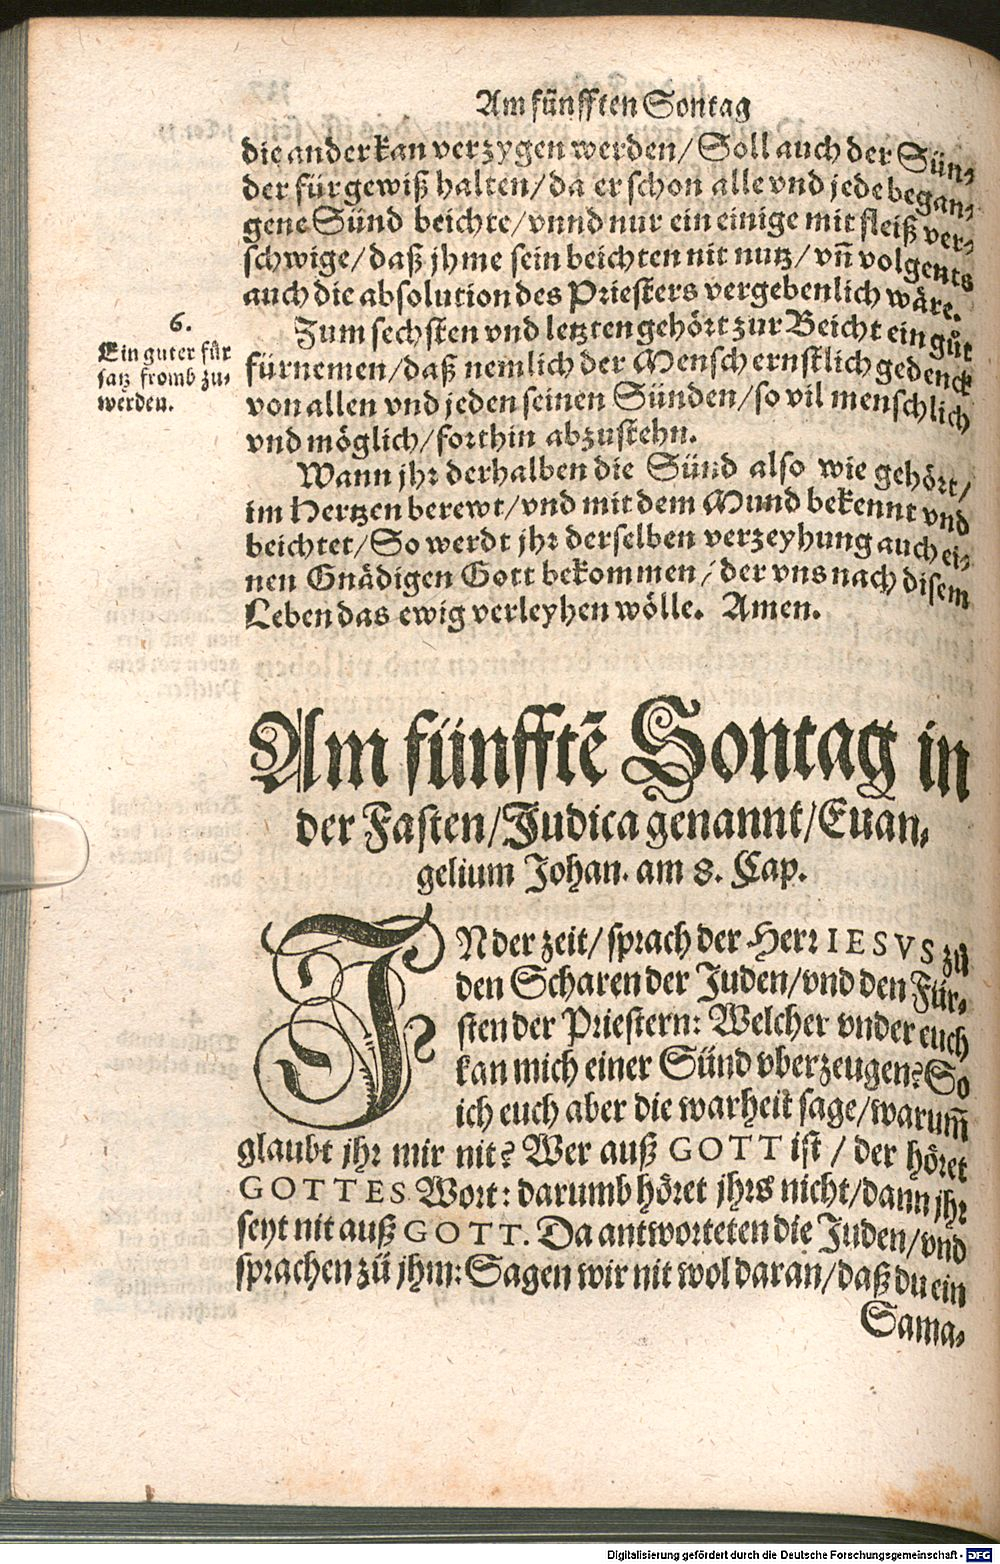 Am fünfften Sontag
die ander kan verzygen werden/ Soll auch der Sün-
der für gewiß halten/ da er schon alle vnd jede began-
gene Sünd beichte/ vnnd nur ein einige mit fleiß ver-
schwige/ daß jhme sein beichten nit nutz/ vn̄ volgents
auch die absolution des Priesters vergebenlich wäre.
6.
Ein guter für
satz fromb zu-
werden.
Zum sechsten vnd letzten gehört zur Beicht ein gůt
fürnemen/ daß nemlich der Mensch ernstlich gedenck
von allen vnd jeden seinen Sünden/ so vil menschlich
vnd möglich/ forthin abzustehn.
Wann jhr derhalben die Sünd also wie gehört/
im Hertzen berewt/ vnd mit dem Mund bekennt vnd
beichtet/ So werdt jhr derselben verzeyhung auch ei-
nen Gnädigen Gott bekommen/ der vns nach disem
Leben das ewig verleyhen wölle. Amen.
Am fünfftē Sontag in
der Fasten/ Judica genannt/ Euan-
gelium Johan. am 8. Cap.
IN der zeit/ sprach der Herr IESVS zů
den Scharen der Juden/ vnd den Für-
sten der Priestern: Welcher vnder euch
kan mich einer Sünd vberzeugen? So
ich euch aber die warheit sage/ warum̄
glaubt jhr mir nit? Wer auß GOTT ist/ der höret
GOTTES Wort: darumb höret jhrs nicht/ dann jhr
seyt nit auß GOTT. Da antworteten die Juden/ vnd
sprachen zů jhm: Sagen wir nit wol daran/ daß du ein
Sama-
Digitalisierung gefördert durch die Deutsche Forschungsgemeinschaft - DFG